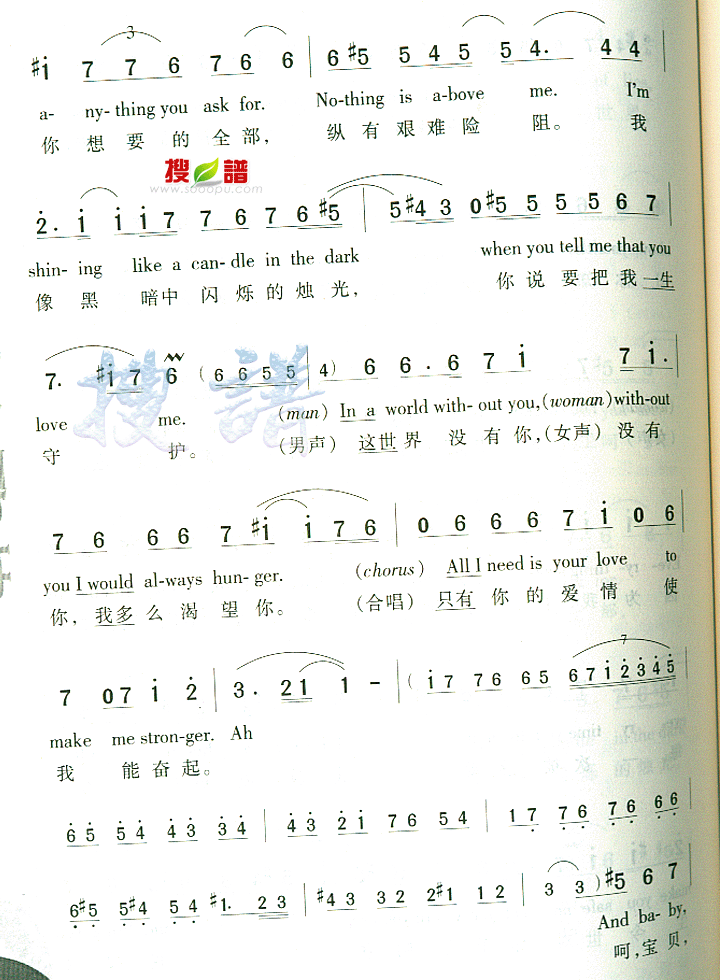 3
#i 7 7 6 7 6 6 | 6 #5 5 4 5 5 4. 4 4 |
a- ny- thing you ask for. No-thing is a-bove me. I'm
你 想 要 的 全 部， 纵 有 艰 难 险 阻。 我
搜 譜
www.sooopu.com
2. i i i 7 7 6 7 6 #5 | 5 #4 3 0 #5 5 5 5 6 7 |
shin- ing like a can- dle in the dark when you tell me that you
像 黑 暗中 闪 烁 的 烛 光， 你 说 要 把 我 一生
7. #i 7 6 ( 6 6 5 5 | 4 ) 6 6 . 6 7 i 7 i. |
搜 譜
love me. (man) In a world with- out you, (woman) with-out
守 护。 (男声) 这世 界 没 有 你，(女声) 没 有
7 6 6 6 7 #i i 7 6 | 0 6 6 6 7 i 0 6 |
you I would al-ways hun- ger. (chorus) All I need is your love to
你，我多 么 渴 望 你。 (合唱) 只有 你 的 爱 情 使
7
7 0 7 i 2 | 3 . 2 i 1 - | ( i 7 7 6 6 5 5 6 7 i 2 3 4 5 |
make me stron-ger. Ah
我 能 奋 起。
6 5 5 4 4 3 3 4 | 4 3 2 i 7 6 5 4 | 1 7 7 6 7 6 6 6
6 #5 5 #4 5 4 #1. 2 3 | #4 3 3 2 2 #1 1 2 | 3 3 ) #5 6 7
And ba- by,
呵，宝 贝，